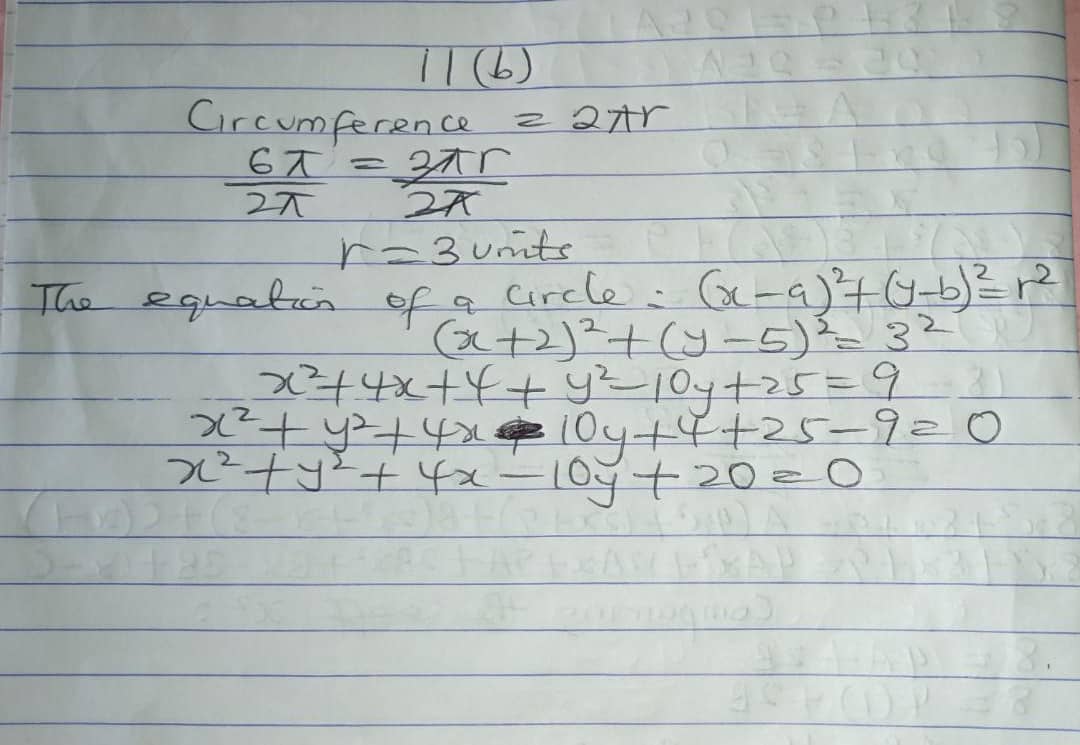 11(b)
Circumference = 2πr
6π = 2πr
2π 2π
r = 3 units
The equation of a circle : (x-a)²+(y-b)²=r²
(x+2)²+(y-5)²=3²
x²+4x+4+y²-10y+25=9
x²+y²+4x-10y+4+25-9=0
x²+y²+4x-10y+20=0